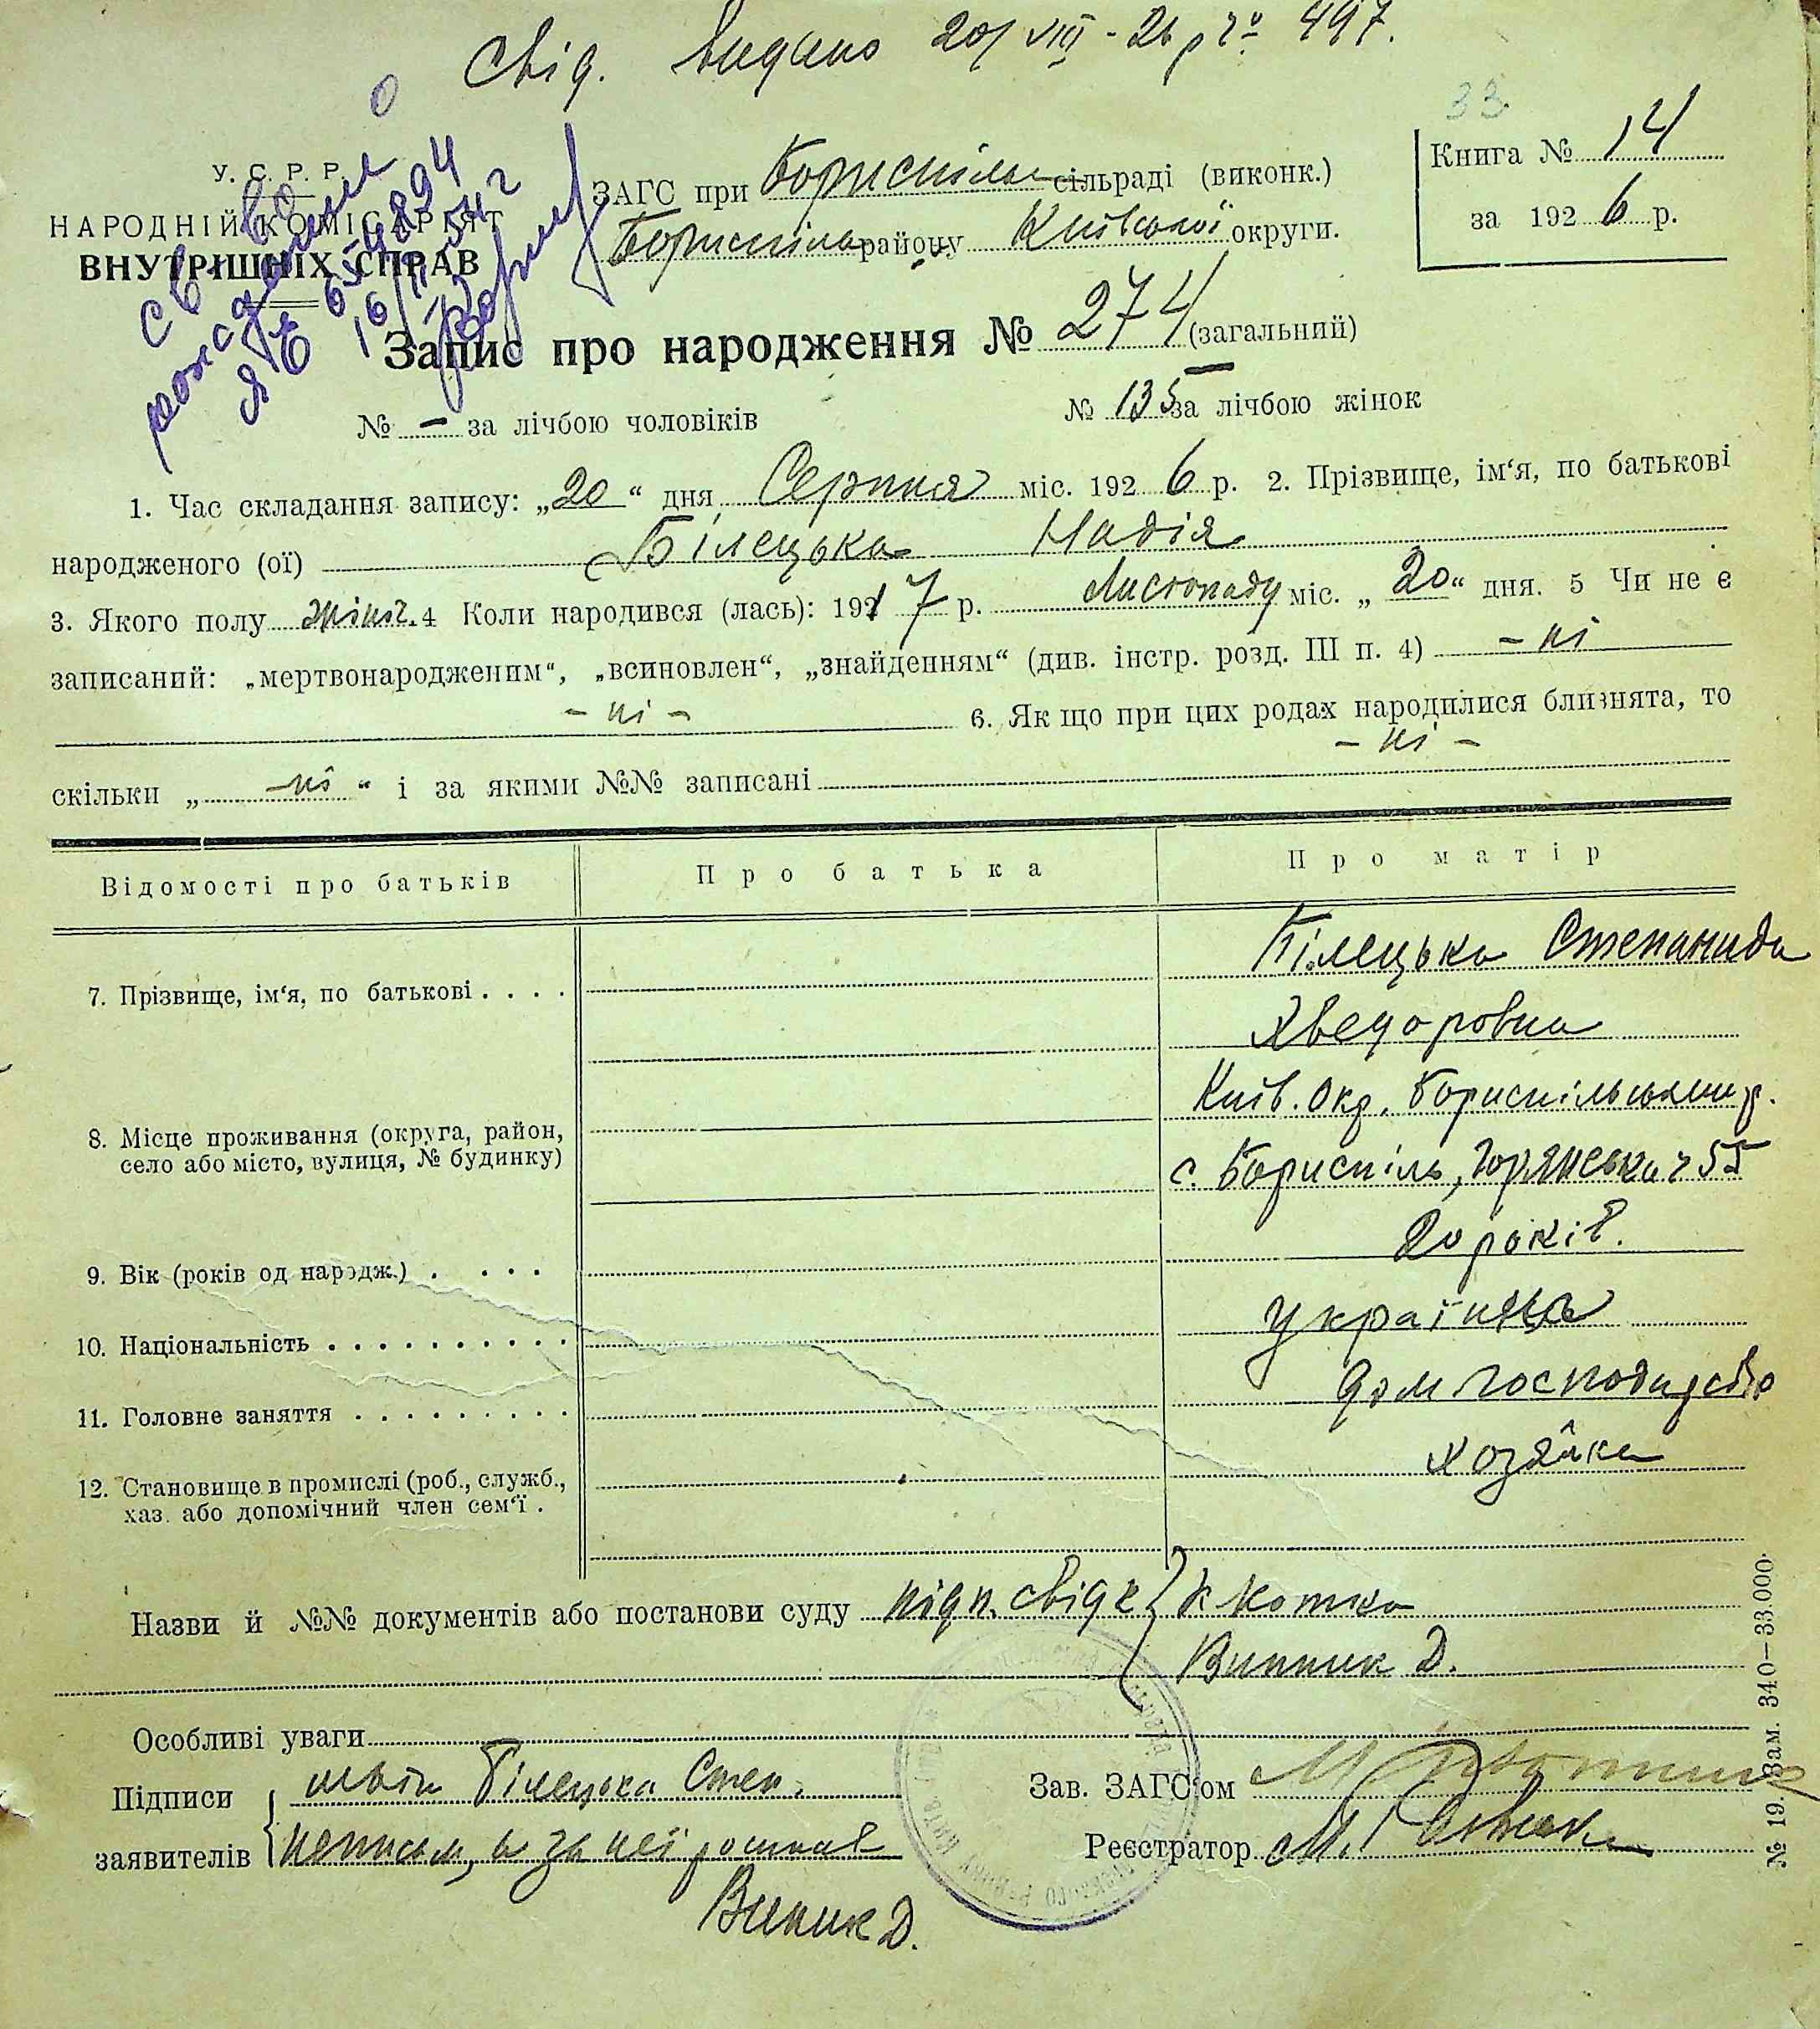 Свід. видано 20/VIII - 26 р № 497.
33
У. С. Р. Р.
НАРОДНІЙ КОМІСАРІЯТ
ВНУТРІШНІХ СПРАВ
св во
рождении
16/
54 г
ЗАГС при Бориспільс сільраді (виконк.)
Бориспільс району Київської округи.
Книга № 14
за 192 6 р.
Запис про народження № 274 (загальний)
№ - за лічбою чоловіків № 135 за лічбою жінок
1. Час складання запису: „20“ дня Серпня міс. 192 6 р. 2. Прізвище, ім‘я, по батькові
народженого (ої) Білецька Надія
3. Якого полу жіноч. 4 Коли народився (лась): 191 7 р. Листопаду міс. „20“ дня. 5 Чи не є
записаний: „мертвонародженим“, „всиновлен“, „знайденням“ (див. інстр. розд. III п. 4) - ні
- ні - 6. Як що при цих родах народилися близнята, то
скільки „ ні “ і за якими №№ записані - ні -
Відомості про батьків Про батька Про матір
7. Прізвище, ім‘я, по батькові . . . . Білецька Степанида
Хведоровна
8. Місце проживання (округа, район,
село або місто, вулиця, № будинку)
Київ. Окр. Бориспільський р.
с. Бориспіль, 55
9. Вік (років од народж.) . . . . 20 років.
10. Національність . . . . . . . . . . українка
11. Головне заняття . . . . . . . . . дом господарство
12. Становище в промислі (роб., служб.,
хаз. або допомічний член сем‘ї .
хозяйка
Назви й №№ документів або постанови суду підп. свідк К Котко
Винник Д.
Особливі уваги
Підписи заявителів
мати Білецька Степ.
неписьм, а за неї росписав
Виник Д.
Зав. ЗАГС‘ом
Реєстратор М.
№ 19. Зам. 340—33.000.